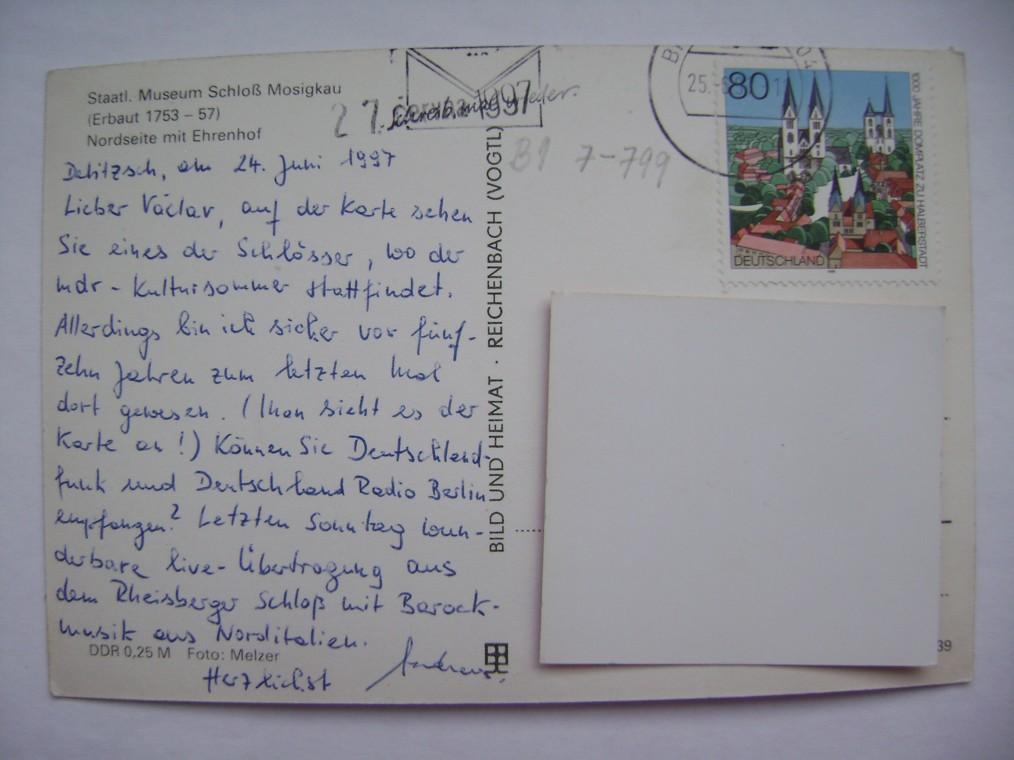 Staatl. Museum Schloß Mosigkau
(Erbaut 1753 – 57)
Nordseite mit Ehrenhof
Delitzsch, am 24. Juni 1997
Lieber Václav, auf der Karte sehen
Sie eines der Schlösser, wo der
mdr - Kultursommer stattfindet.
Allerdings bin ich sicher vor fünf-
zehn Jahren zum letzten Mal
dort gewesen. (Man sieht es der
Karte an!) Können Sie Deutschland-
funk und Deutschland Radio Berlin
empfangen? Letzten Sonntag wun-
derbare live-Übertragung aus
dem Rheisberger Schloß mit Barock-
musik aus Norditalien.
Herzlichst Andreas
DDR 0,25 M Foto: Melzer
BILD UND HEIMAT · REICHENBACH (VOGTL)
27. 1997
B1 7-799
25.
80
DEUTSCHLAND
1000 JAHRE DOMPLATZ ZU HALBERSTADT
39